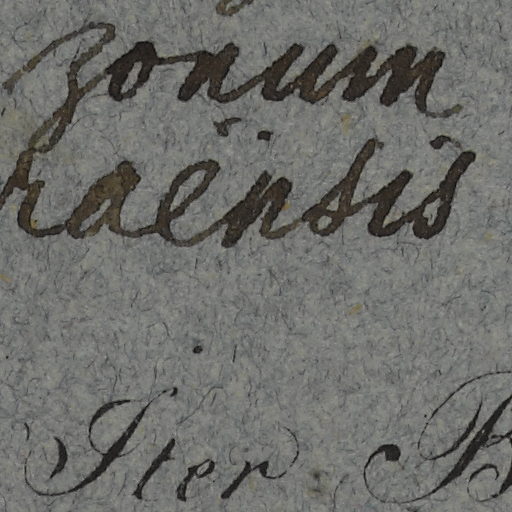 zonum
raënsis
Iter B